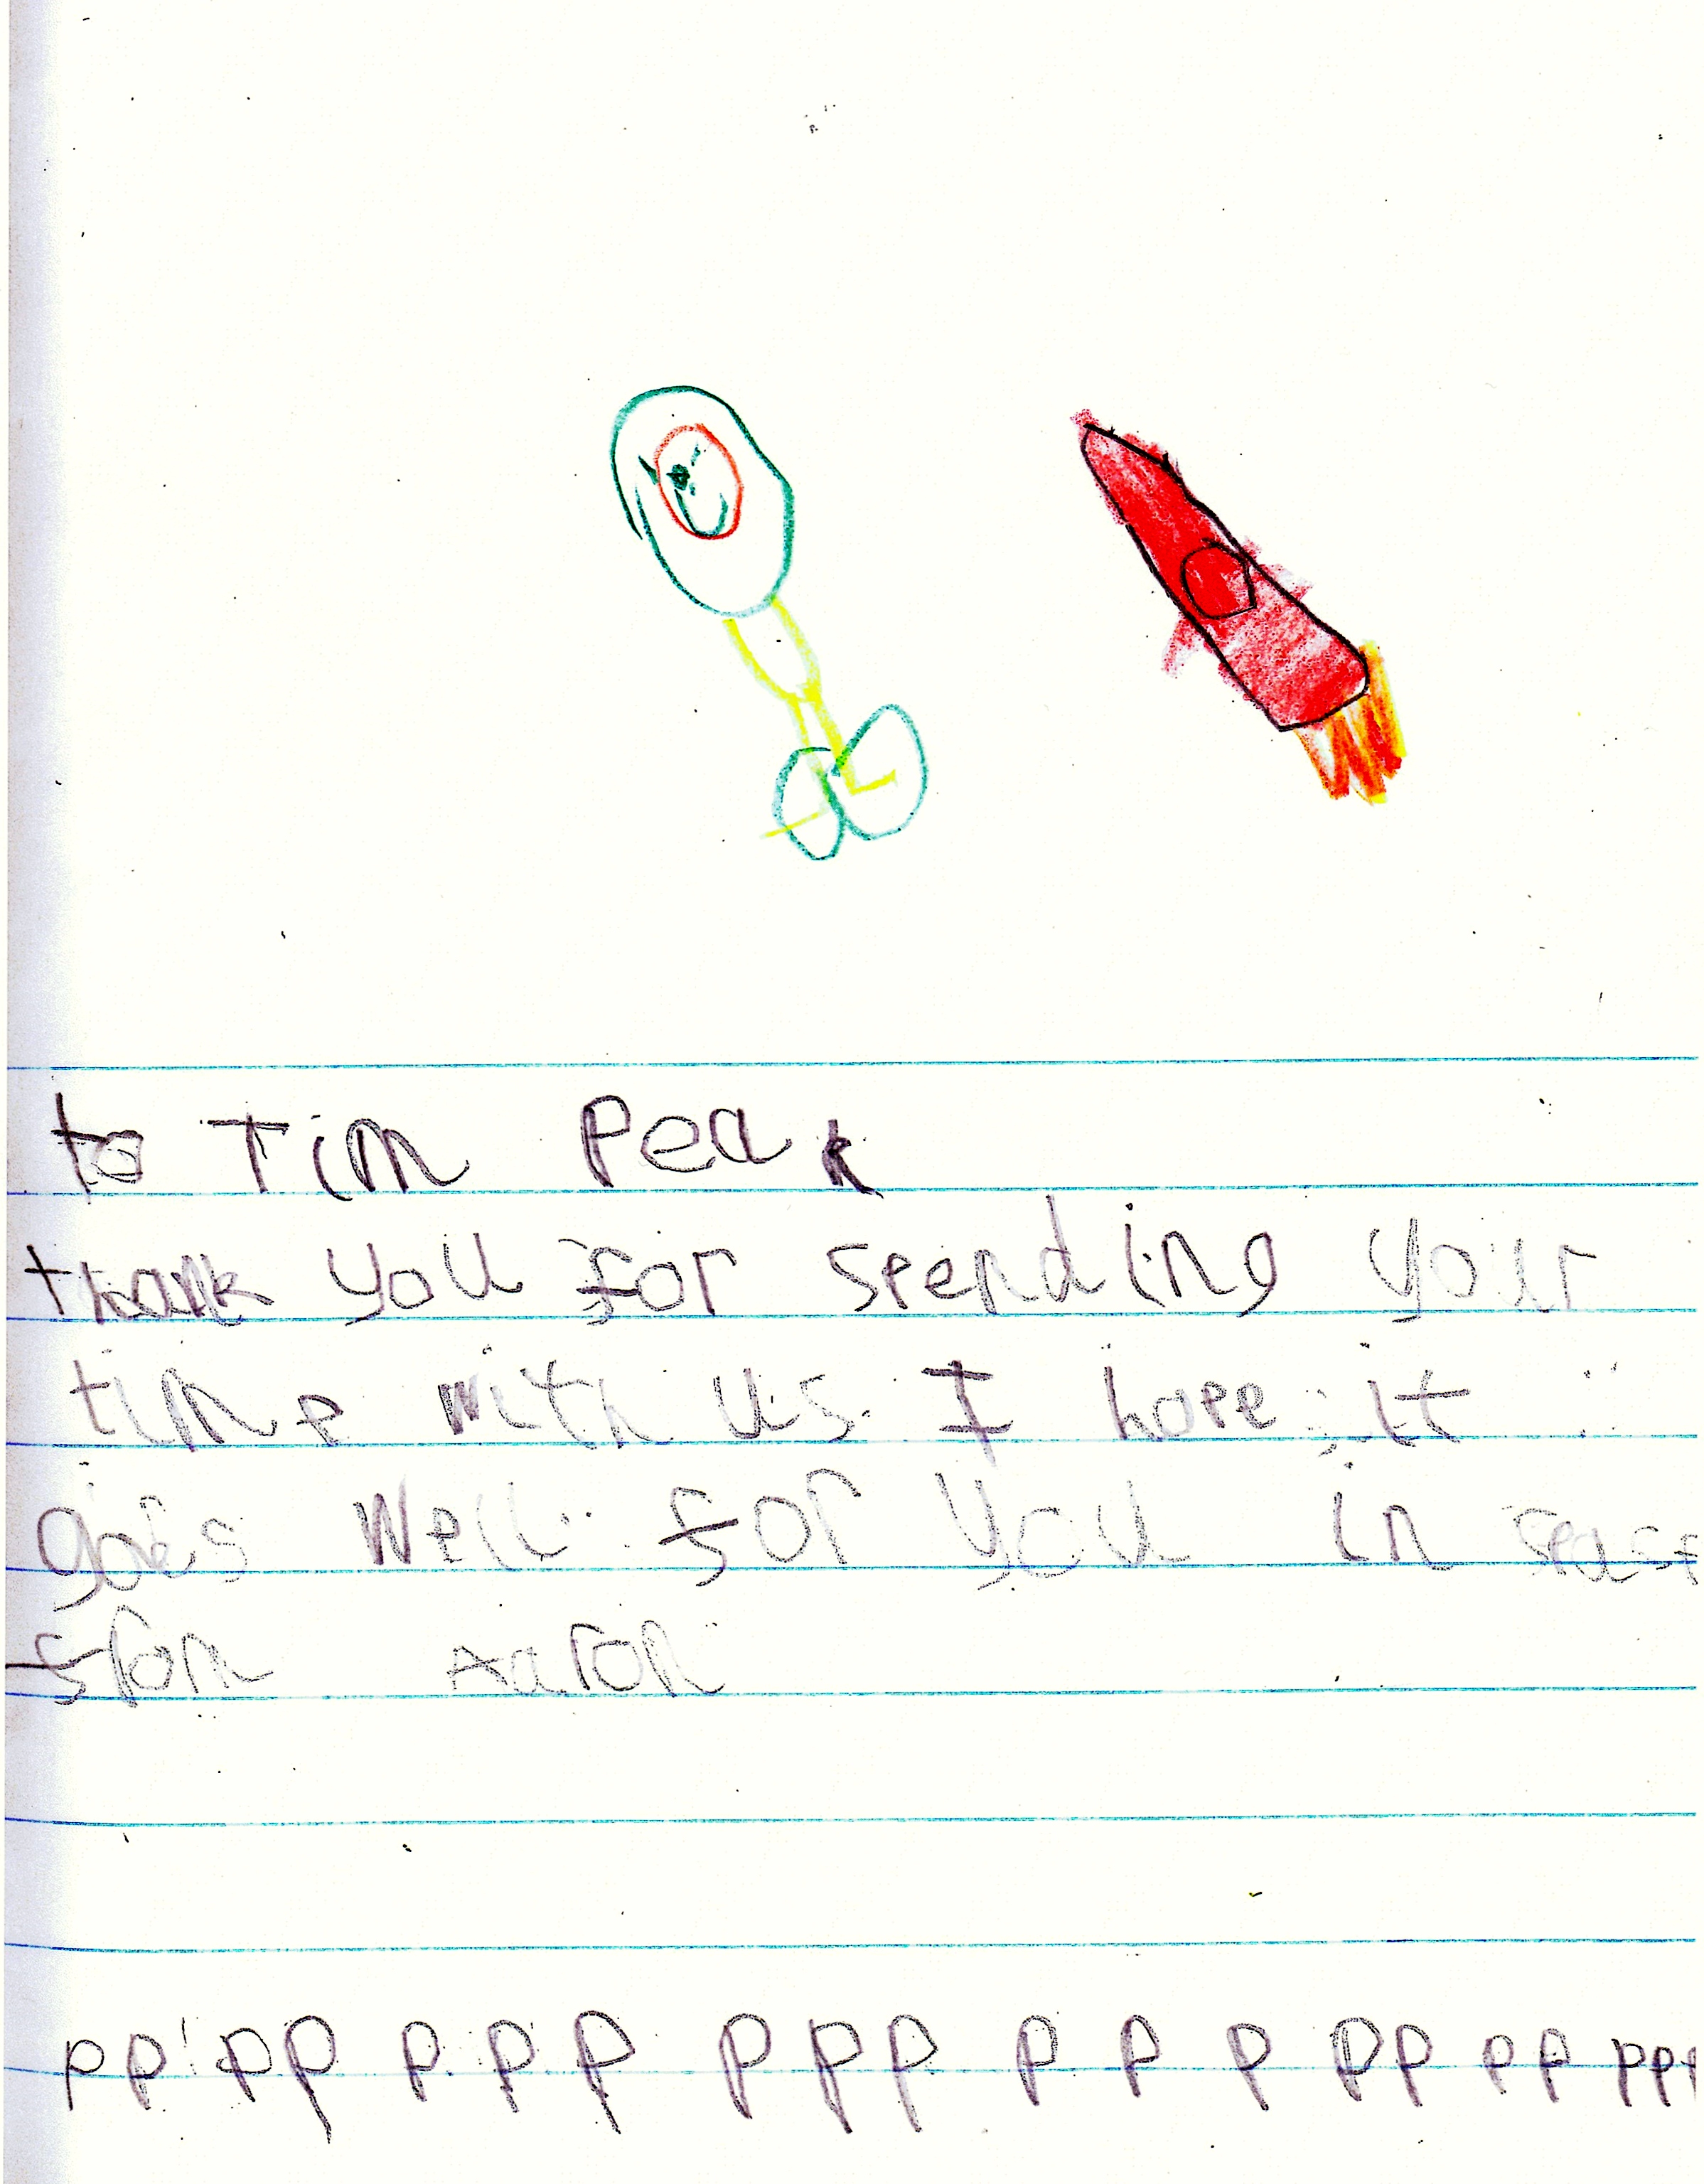 to Tim Peak
thank you for spending your
time with us I hope it
goes well for you in
from Aaron
pp pp p p p p p p p p p pp pp ppp